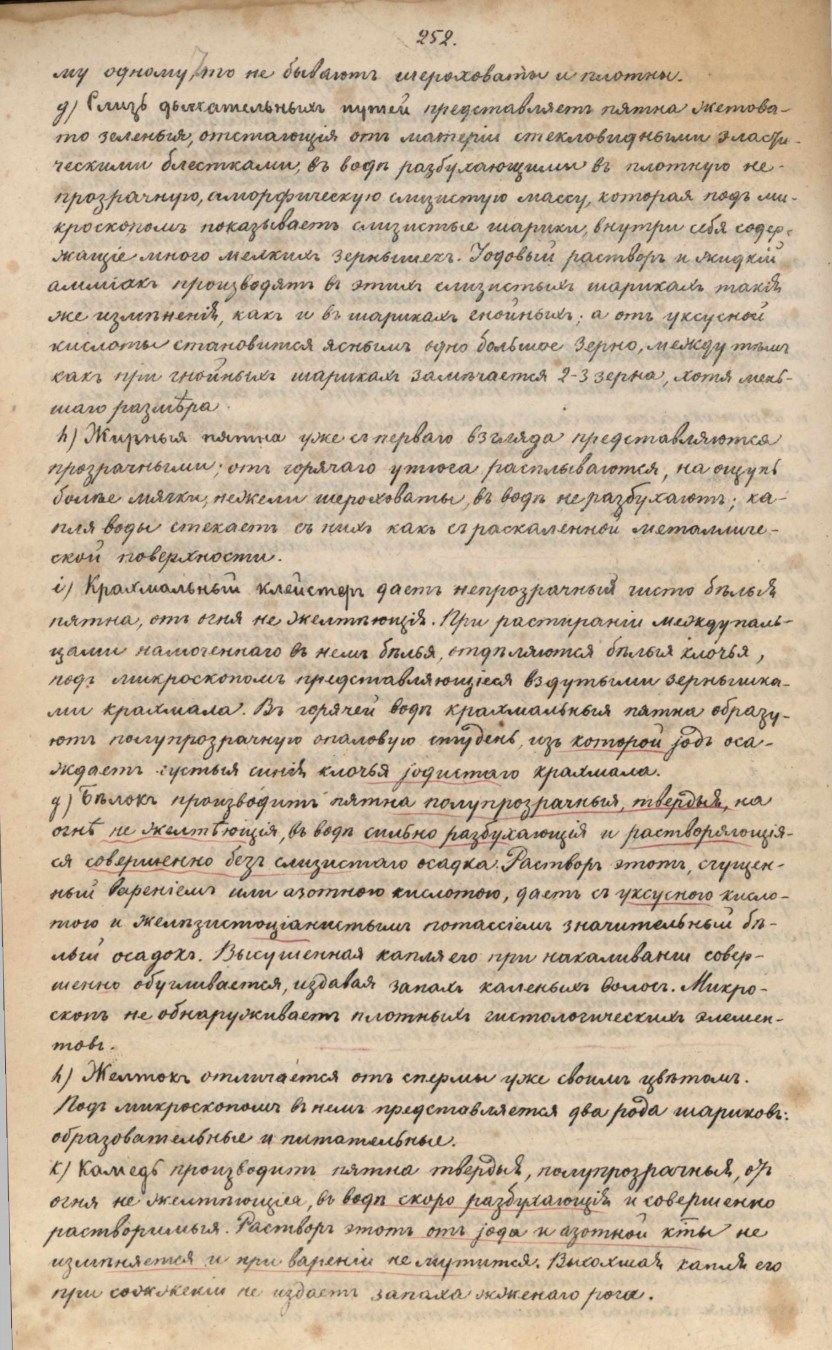 252.
му одному, то не бываютъ шероховаты и плотны.
g) Слизь дыхательныхъ путей представляетъ пятна желтова-
то зеленыя, отстающія отъ матеріи стекловидными эласти-
ческими блестками, въ водѣ разбухающими въ плотную не-
прозрачную, аморфическую слизистую массу, которая подъ ми-
кроскопомъ показываетъ слизистые шарики, внутри себя содер-
жащіе много мелкихъ зернышекъ. Іодовый растворъ и жидкій
амміакъ производятъ въ этихъ слизистыхъ шарикахъ такія
же измѣненія, какъ и въ шарикахъ гнойныхъ; а отъ уксусной
кислоты становится яснымъ одно большое зерно, между тѣмъ
какъ при гнойныхъ шарикахъ замѣчается 2-3 зерна, хотя мень-
шаго размѣра.
h) Жирныя пятна уже съ перваго взгляда представляются
прозрачными; отъ горячаго утюга расплываются, на ощупь
болѣе мягки, нежели шероховаты, въ водѣ не разбухаютъ; ка-
пля воды стекаетъ съ нихъ какъ съ раскаленной металличе-
ской поверхности.
i) Крахмальный клейстеръ даетъ непрозрачныя чисто бѣлыя
пятна, отъ огня не желтѣющія. При растираніи между паль-
цами намоченнаго въ немъ бѣлья, отдѣляются бѣлыя клочья,
подъ микроскопомъ представляющіеся вздутыми зернышка-
ми крахмала. Въ горячей водѣ крахмальныя пятна образу-
ютъ полупрозрачную опаловую студень, изъ которой jодъ оса-
ждаетъ густыя синія клочья jодистаго крахмала.
g) Бѣлокъ производитъ пятна полупрозрачныя, твердыя, на
огнѣ не желтѣющія, въ водѣ сильно разбухающія и растворяющія-
ся совершенно безъ слизистаго осадка. Растворъ этотъ, сгущен-
ный вареніемъ или азотною кислотою, даетъ съ уксусною кисло-
тою и желѣзистоціанистымъ потассіемъ значительный бѣ-
лый осадокъ. Высушенная капля его при накаливаніи совер-
шенно обугливается, издавая запахъ каленыхъ волосъ. Микро-
скопъ не обнаруживаетъ плотныхъ гистологическихъ элемен-
товъ.
h) Желтокъ отличается отъ спермы уже своимъ цвѣтомъ.
Подъ микроскопомъ въ немъ представляется два рода шариковъ:
образовательные и питательные.
к) Камедь производитъ пятна твердыя, полупрозрачныя, отъ
огня не желтѣющіеа, въ водѣ скоро разбухающія и совершенно
растворимыя. Растворъ этотъ отъ jода и азотной к̅ты не
измѣняется и при вареніи не мутится. Высохшая капля его
при сожженіи не издаетъ запаха жженаго рога.